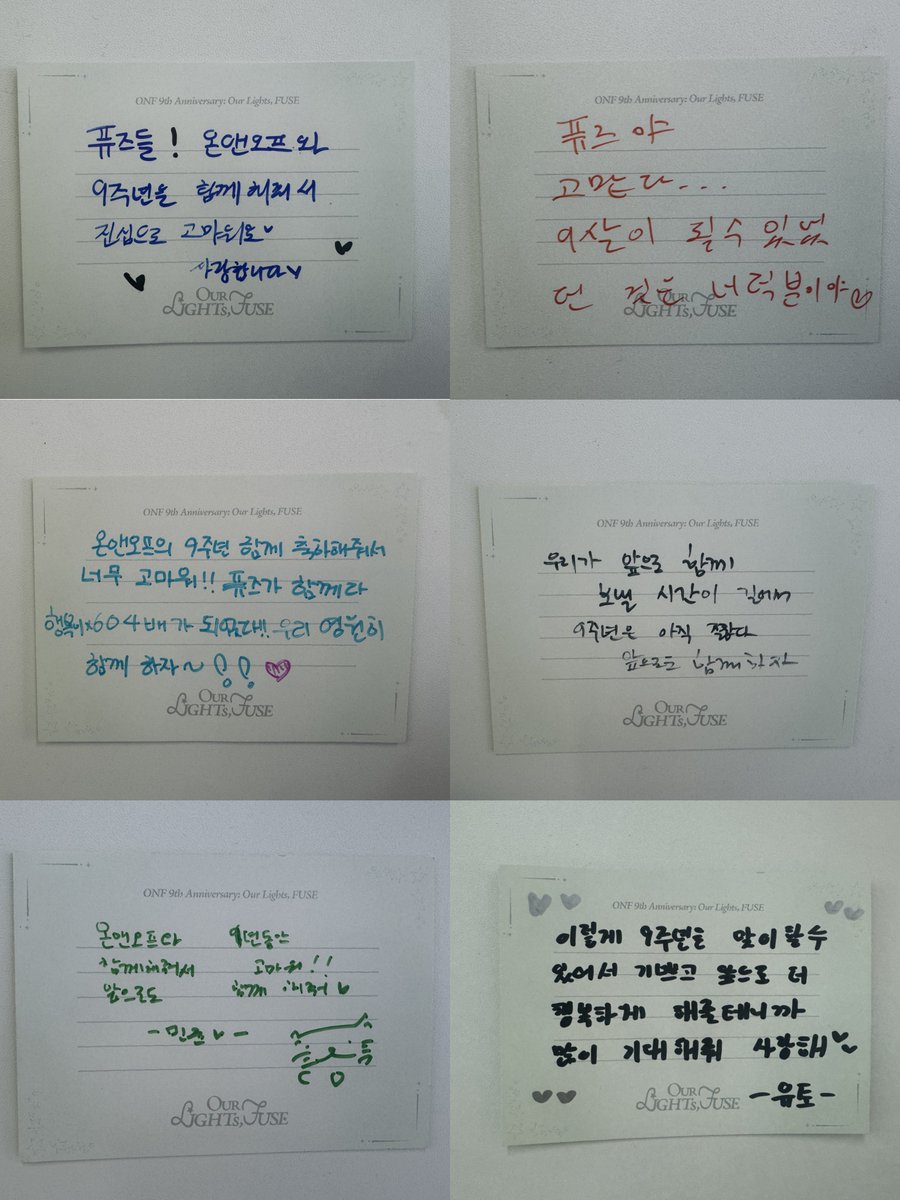 ONF 9th Anniversary: Our Lights, FUSE
퓨즈들! 온앤오프와
9주년을 함께해줘서
진심으로 고마워요
사랑합니다
OUR
LIGHTS, FUSE
ONF 9th Anniversary: Our Lights, FUSE
퓨즈야
고맙다...
9살이 될수 있었
던 것은 너 덕분이야
OUR
LIGHTS, FUSE
ONF 9th Anniversary: Our Lights, FUSE
온앤오프의 9주년 함께 축하해줘서
너무 고마워!! 퓨즈가 함께라
행복이x604배가 되었다!! 우리 영원히
함께 하자~
OUR
LIGHTS, FUSE
ONF 9th Anniversary: Our Lights, FUSE
우리가 앞으로 함께
보낼 시간이 길어서
9주년은 아직 짧다
앞으로도 함께하자
OUR
LIGHTS, FUSE
ONF 9th Anniversary: Our Lights, FUSE
온앤오프랑 9년동안
함께해줘서 고마워!!
앞으로도 함께 해줘
-민균-
OUR
LIGHTS, FUSE
ONF 9th Anniversary: Our Lights, FUSE
이렇게 9주년을 맞이할수
있어서 기쁘고 앞으로 더
행복하게 해줄테니까
많이 기대해줘 사랑해
-유토-
OUR
LIGHTS, FUSE